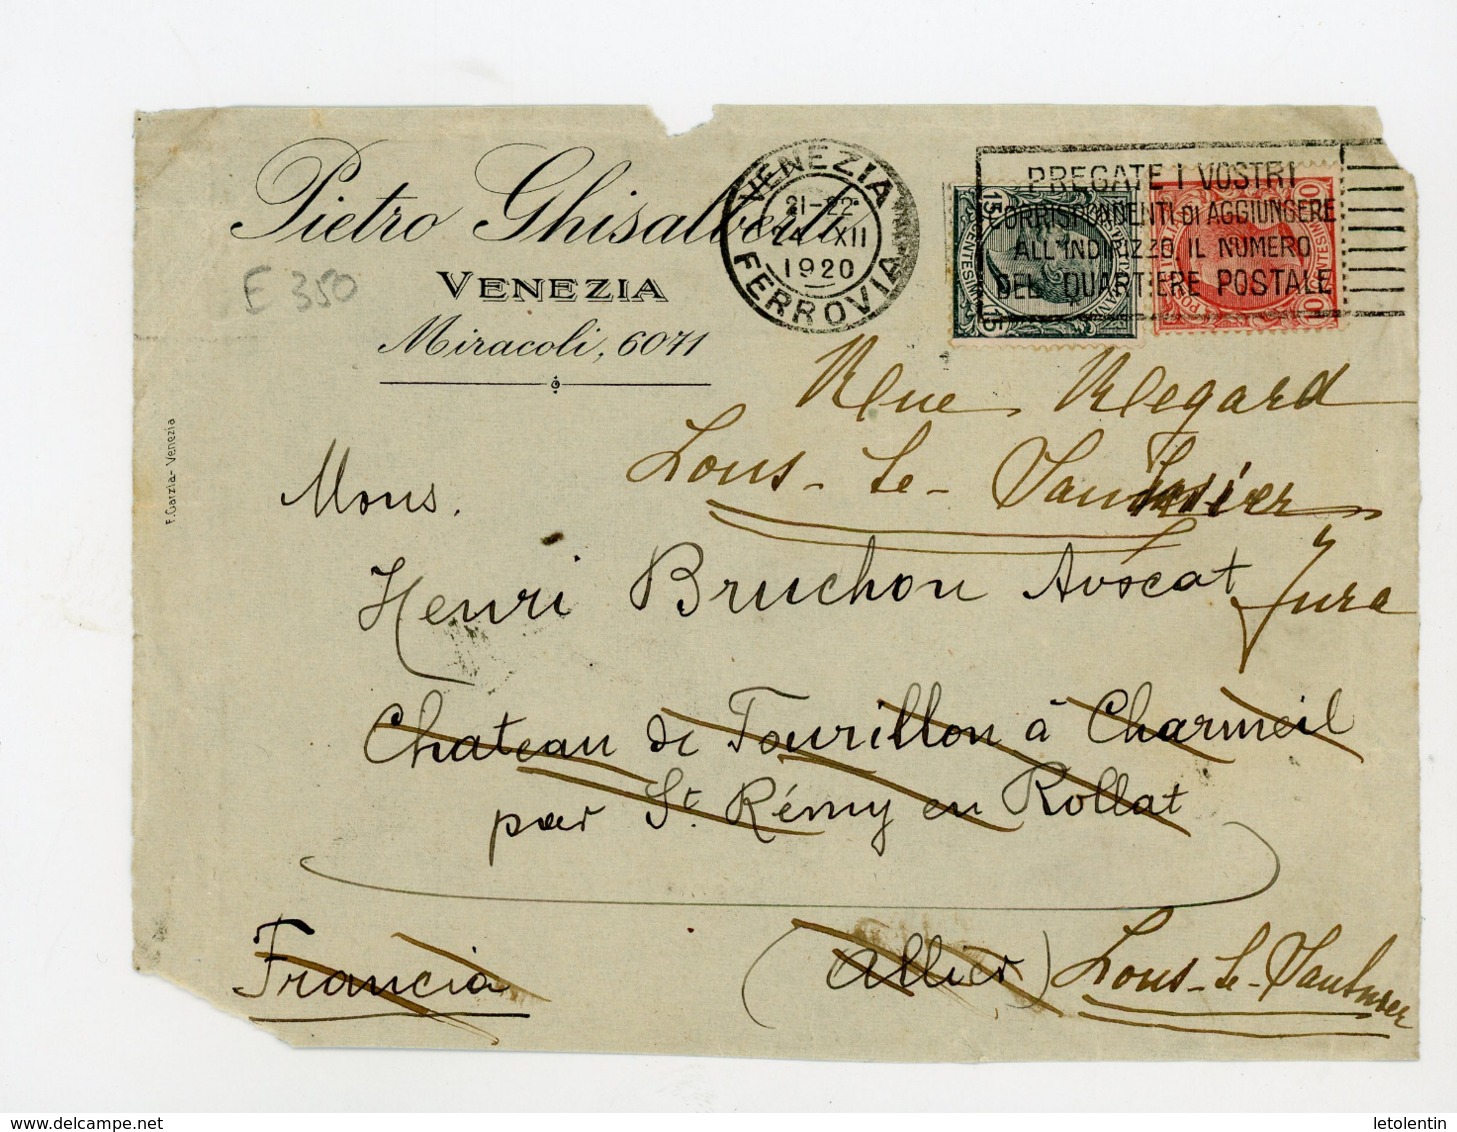 Pietro Ghisalberti
VENEZIA
Miracoli, 6071
E 350
F. Garzia - Venezia
VENEZIA
21-22
24 XII
1920
FERROVIA
PREGATE I VOSTRI
CORRISPONDENTI DI AGGIUNGERE
ALL'INDIRIZZO IL NUMERO
DEL QUARTIERE POSTALE
15
15
10
10
Rue Regard
Lons-le-Saunier
Jura
Mons.
Henri Bruchon Avocat
Chateau de Tourillon à Charmeil
par St. Rémy en Rollat
Francia
(Allier)
Lons-le-Saunier
delcampe.net
letolentin